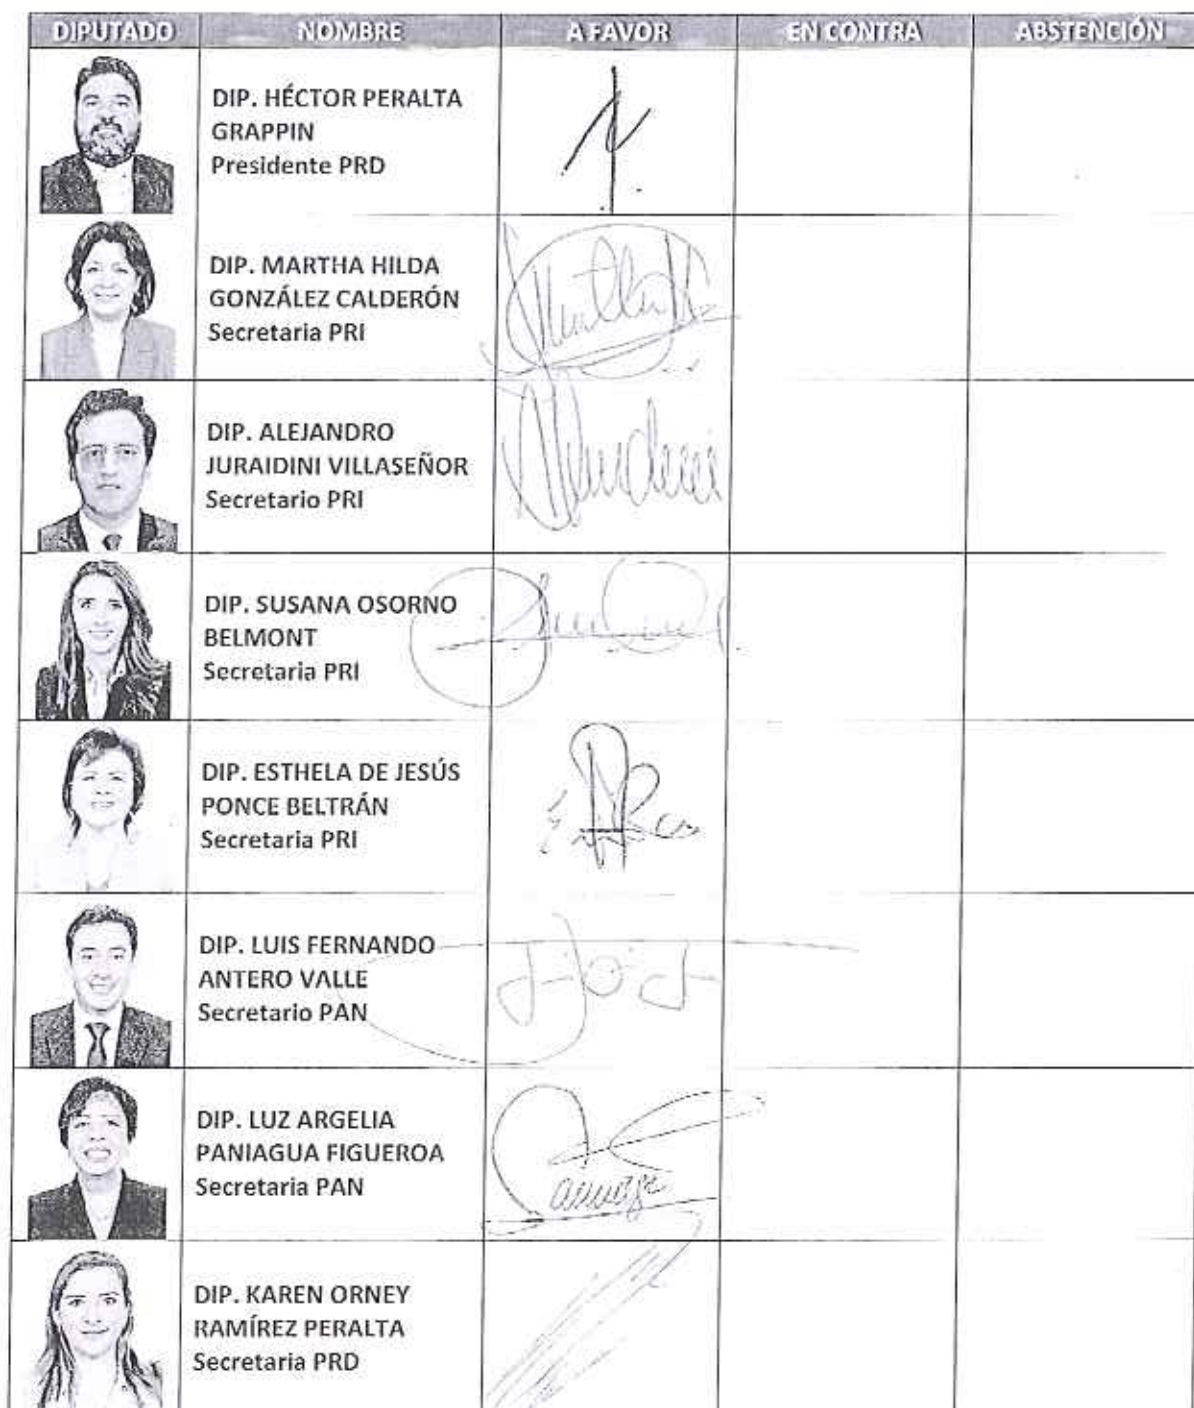 DIPUTADO NOMBRE A FAVOR EN CONTRA ABSTENCIÓN
DIP. HÉCTOR PERALTA
GRAPPIN
Presidente PRD
DIP. MARTHA HILDA
GONZÁLEZ CALDERÓN
Secretaria PRI
DIP. ALEJANDRO
JURAIDINI VILLASEÑOR
Secretario PRI
DIP. SUSANA OSORNO
BELMONT
Secretaria PRI
DIP. ESTHELA DE JESÚS
PONCE BELTRÁN
Secretaria PRI
DIP. LUIS FERNANDO
ANTERO VALLE
Secretario PAN
DIP. LUZ ARGELIA
PANIAGUA FIGUEROA
Secretaria PAN
DIP. KAREN ORNEY
RAMÍREZ PERALTA
Secretaria PRD